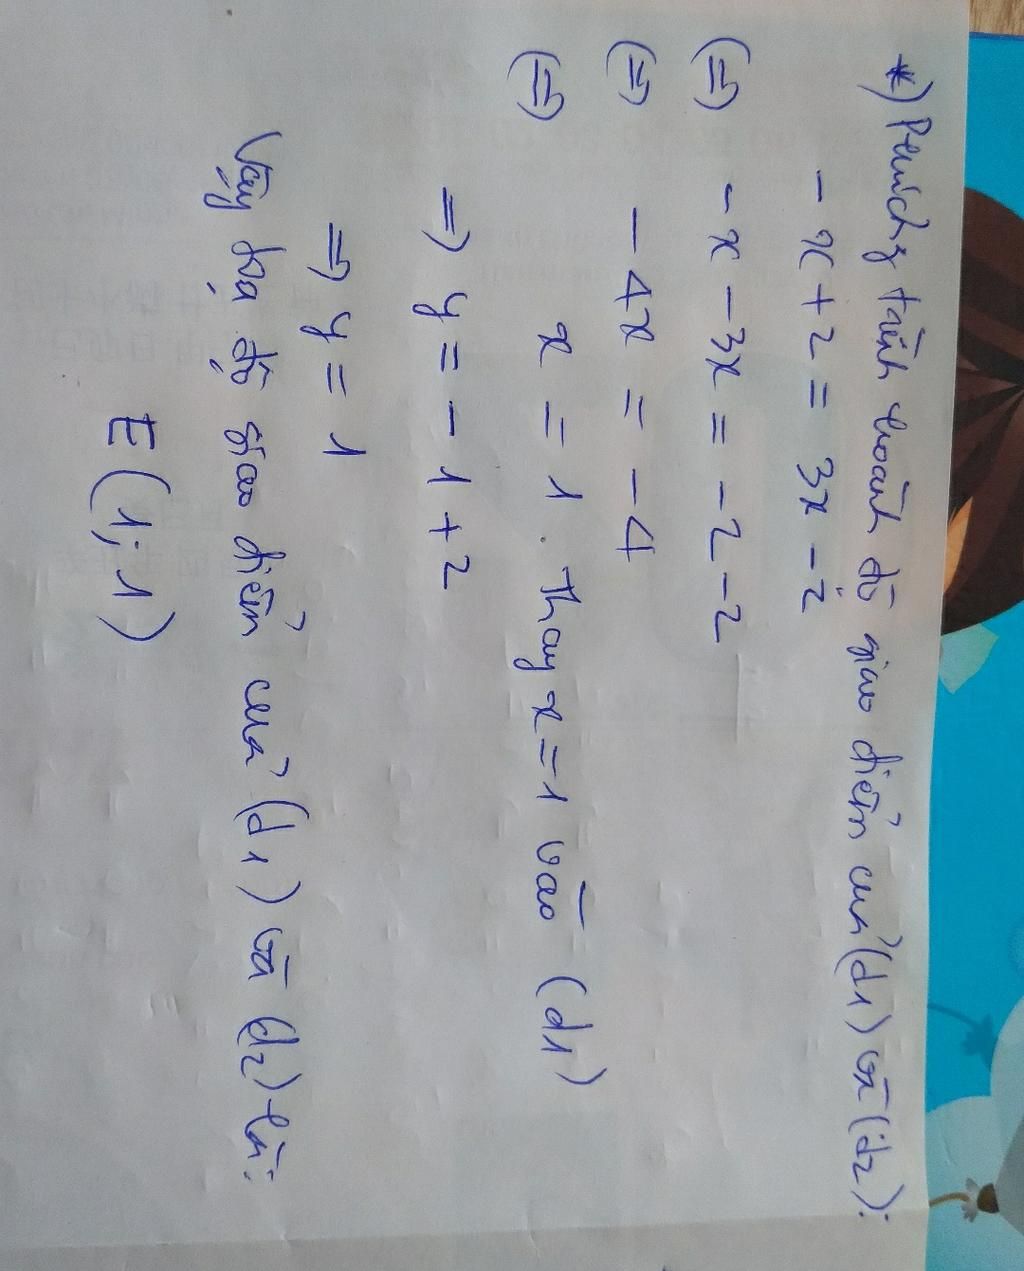 *) Phương trình hoành độ giao điểm của (d1) và (d2):
- x + 2 = 3x - 2
(=) - x - 3x = - 2 - 2
(=) - 4x = - 4
(=) x = 1. Thay x = 1 vào (d1)
=) y = - 1 + 2
=) y = 1
Vậy toạ độ giao điểm của (d1) và (d2) là:
E (1; 1)